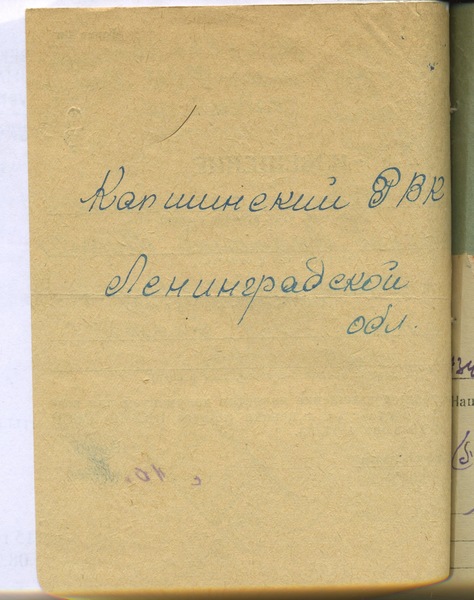 Капшинский РВК
Ленинградской
обл.
Нац